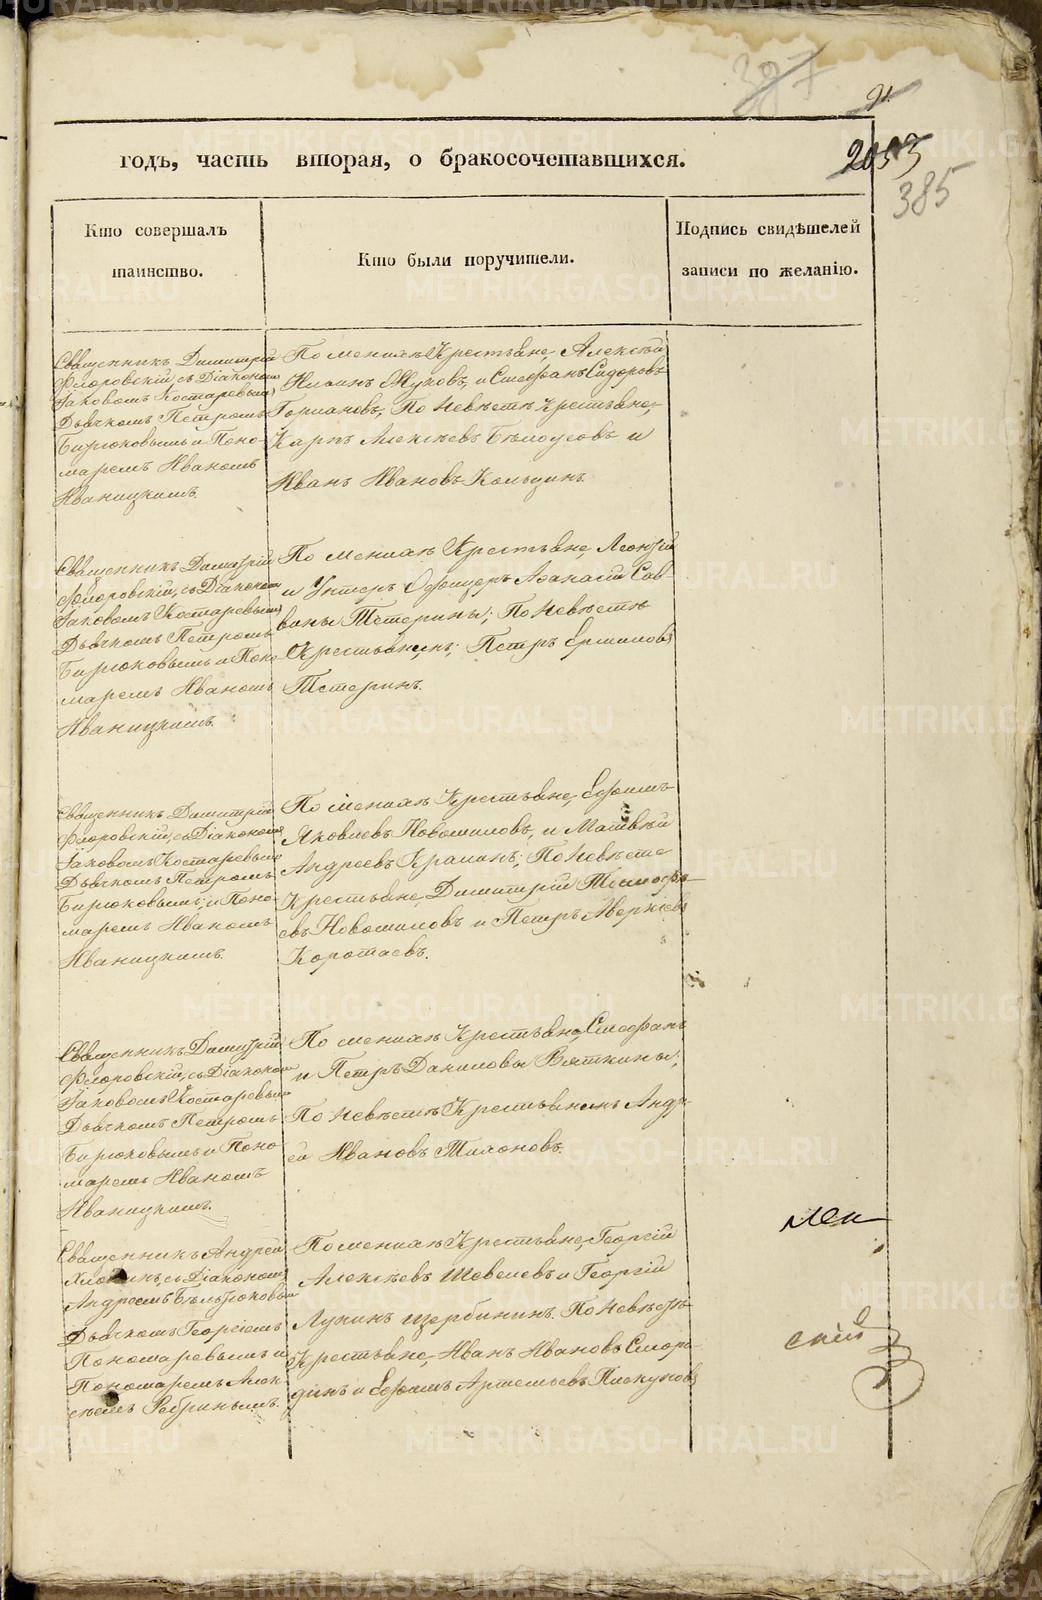 387
91
2093
385
годъ, часть вторая, о бракосочетавшихся.
Кто совершалъ
таинство.
Кто были поручители.
Подпись свидѣтелей
записи по желанію.
Священникъ Димитрій
Флоровскій, съ Діакономъ
Іаковомъ Костаревымъ
Дьячкомъ Петромъ
Бирюковымъ и Поно-
маремъ Иваномъ
Иваницкимъ.
По женихѣ Крестьяне, Алексѣй
Жуковъ, и Стефанъ Сидоровъ
По невѣстѣ Крестьяне,
Карпъ Алексѣевъ Бѣлоусовъ и
Иванъ Ивановъ Кольцинъ.
Священникъ Димитрій
Флоровскій, съ Діакономъ
Іаковомъ Костаревымъ
Дьячкомъ Петромъ
Бирюковымъ и Поно-
маремъ Иваномъ
Иваницкимъ.
По женихѣ Крестьяне, Леонтій
и Унтеръ Офицеръ Афанасій Сав-
вины Тетерины; По невѣстѣ
Крестьянинъ; Петръ Ермиловъ
Тетеринъ.
Священникъ Димитрій
Флоровскій, съ Діакономъ
Іаковомъ Костаревымъ
Дьячкомъ Петромъ
Бирюковымъ; и Поно-
маремъ Иваномъ
Иваницкимъ.
По женихѣ Крестьяне, Ефимъ
Яковлевъ Новошиловъ, и Матвѣй
Андреевъ По невѣсте
Крестьяне, Димитрій Тимофѣ-
евъ Новошиловъ и Петръ Аверкіевъ
Коротаевъ.
Священникъ Димитрій
Флоровскій, съ Діакономъ
Іаковомъ Костаревымъ
Дьячкомъ Петромъ
Бирюковымъ и Поно-
маремъ Иваномъ
Иваницкимъ.
По женихѣ Крестьяне, Стефанъ
и Петръ Даниловы Вяткины;
По невѣстѣ Крестьянинъ Андр-
ей Ивановъ Тихоновъ.
Священникъ Андрей
съ Діакономъ
Андреемъ
Дьячкомъ Георгіемъ
Пономаревымъ и
Пономаремъ Алек-
сѣемъ Ребринымъ.
По женихѣ Крестьяне, Георгій
Алексѣевъ Шевелевъ и Георгій
Лукинъ Щербининъ. По невѣстѣ
Крестьяне, Иванъ Ивановъ Сморо-
динъ и Ефимъ Артемьевъ Пискуновъ
скій
METRIKI.GASO-URAL.RU